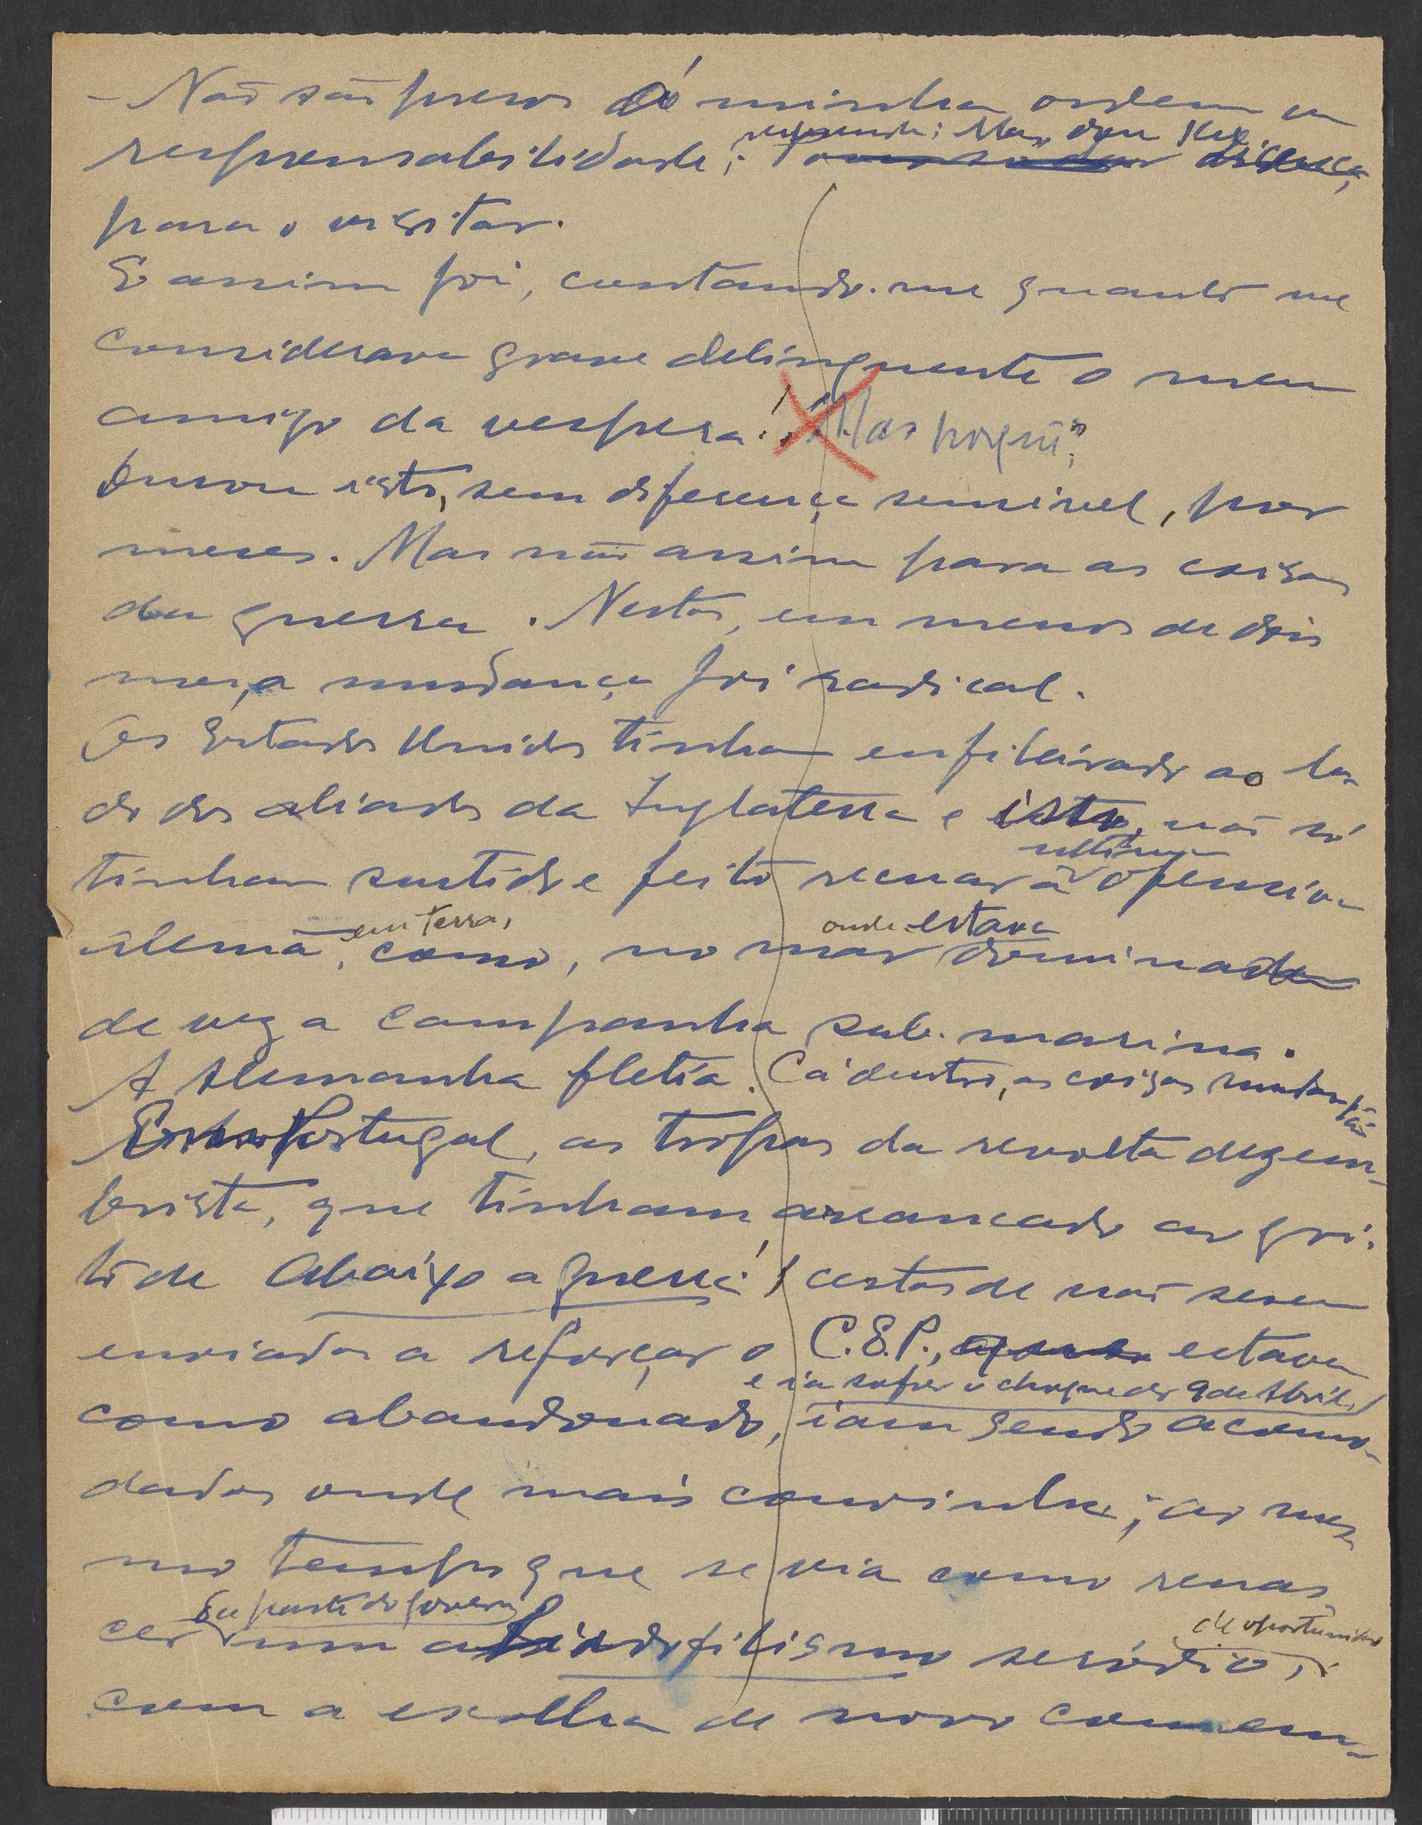 - Não são presos á minha ordem ou
respondi: Mas dou
responsabilidade;
para o visitar.
E assim foi, contando-me quanto me
considerava grave delinquente o meu
amigo da vespera! "Mas porquê"
Durou isto, sem diferença sensivel, por
meses. Mas não assim para as coisas
da guerra. Nestas, em menos de dois
meses, a mudança foi radical.
Os Estados Unidos tinham enfileirado ao la-
do dos aliados da Inglaterra e isto, não só
ultima
tinham sustido e feito recuar a ofensiva
em terra, onde estava
alemã, como, no mar dominada
de vez a campanha sub-marina.
A Alemanha fletia. Cá dentro, as coisas
Portugal, as tropas da revolta dezem-
brista, que tinham arrancado ao gri-
to de Abaixo a guerra! certas de não serem
enviadas a reforçar o C.E.P., que estava
e ia sofrer o choque do 9 de Abril,
como abandonado, iam sendo acomo-
dadas onde mais convinha; ao mes-
mo tempo que se via como renas-
da parte do governo de oportunidade
cer um aliadofilismo serôdio,
com a escolha de novo coman-